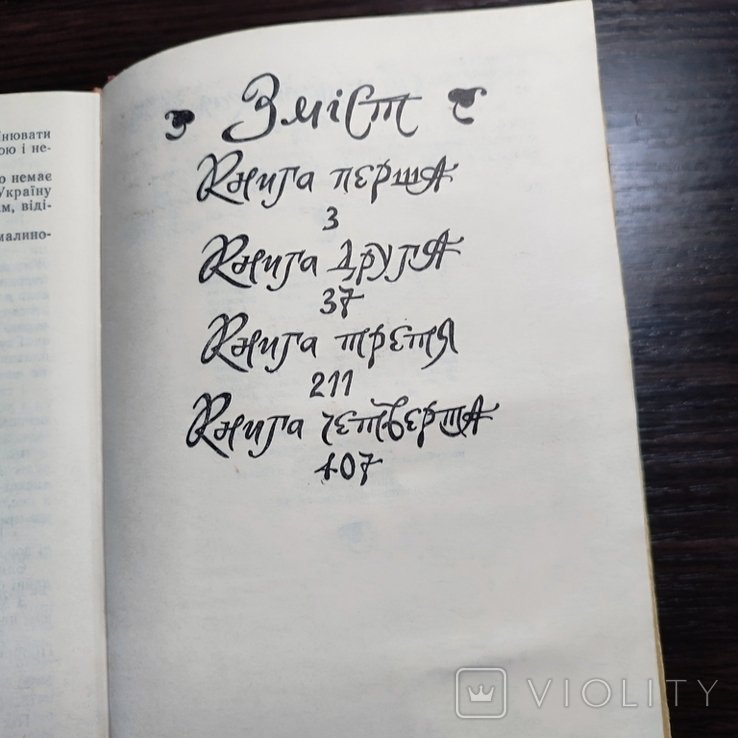 нювати
ою і не-
о немає
Україну
м, віді-
малино-
Зміст
Книга перша
3
Книга друга
37
Книга третя
211
Книга четверта
407
VIOLITY